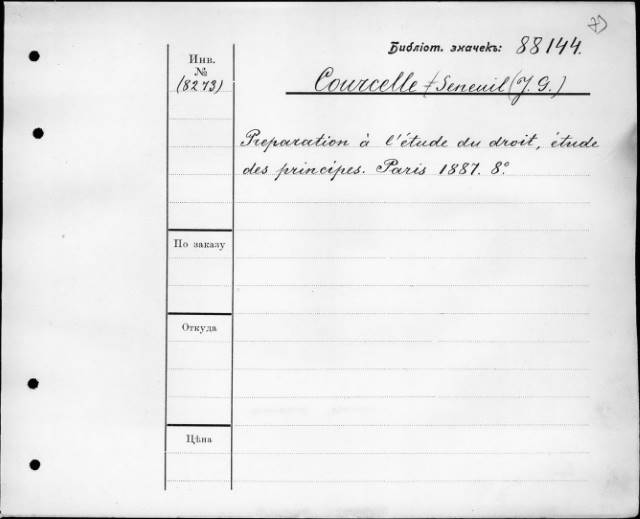 Библіот. значекъ: 88144.
Инв.
№
(8273)
Courcelle-Seneuil (J. G.)
Preparation à l'étude du droit, étude
des principes. Paris 1887. 8º
По заказу
Откуда
Цѣна